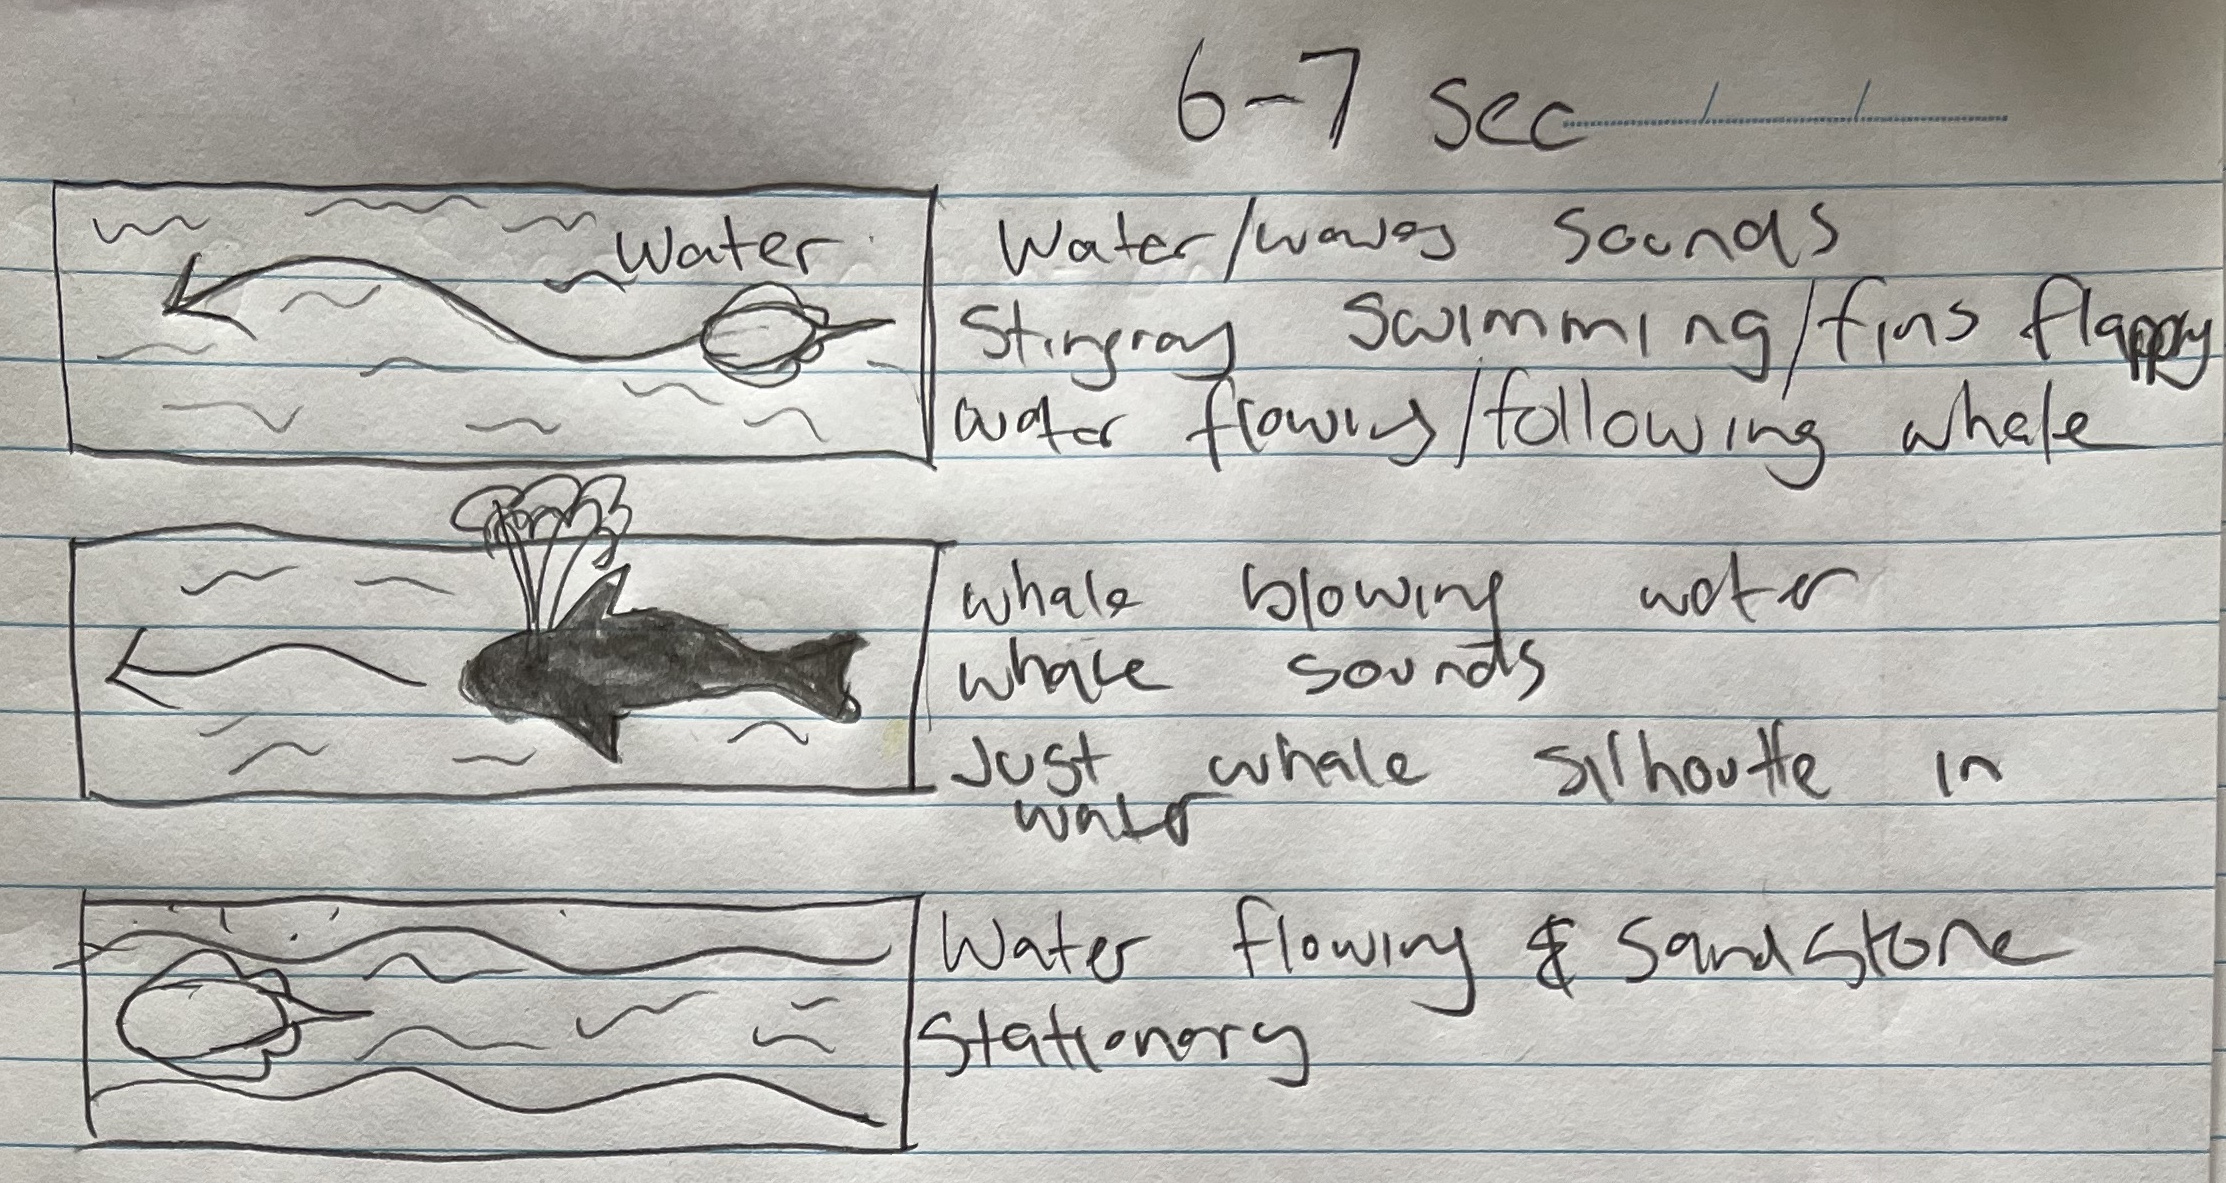 6-7 sec
Water
Water/waves sounds
Stingray swimming/fins flappy
water flowing/following whale
whale blowing water
whale sounds
Just whale silhoutte in
water
Water flowing & sandstone
stationary